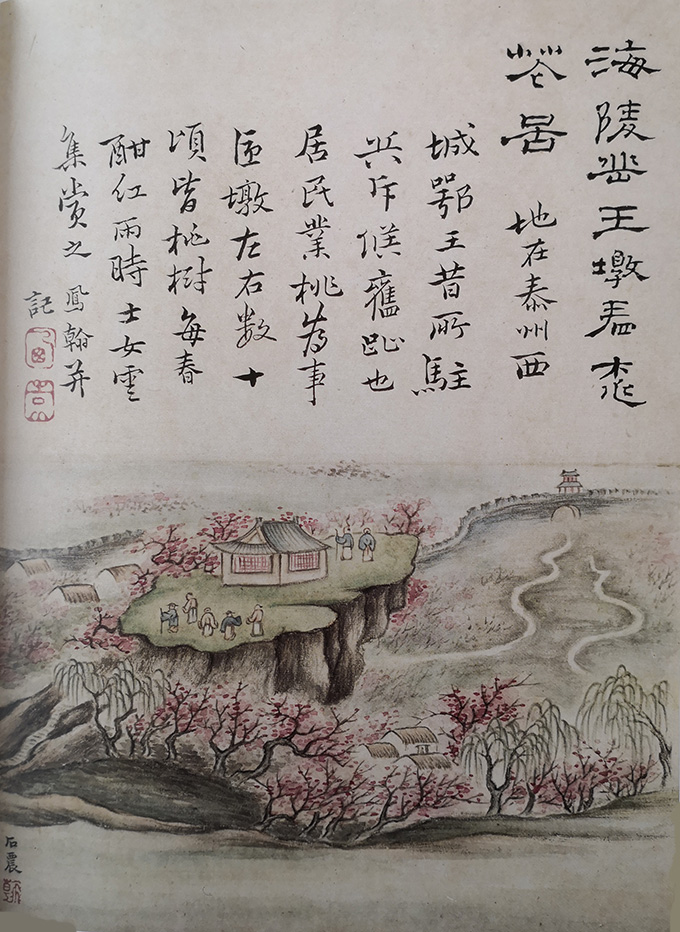 海陵岳王墩看桃
華啚 地在泰州西
城鄂王昔所駐
兵斥候舊趾也
居民業桃為事
匝墩左右數十
頃皆桃樹每春
酣紅雨時士女雲
集賞之 鳳翰并
記
石震